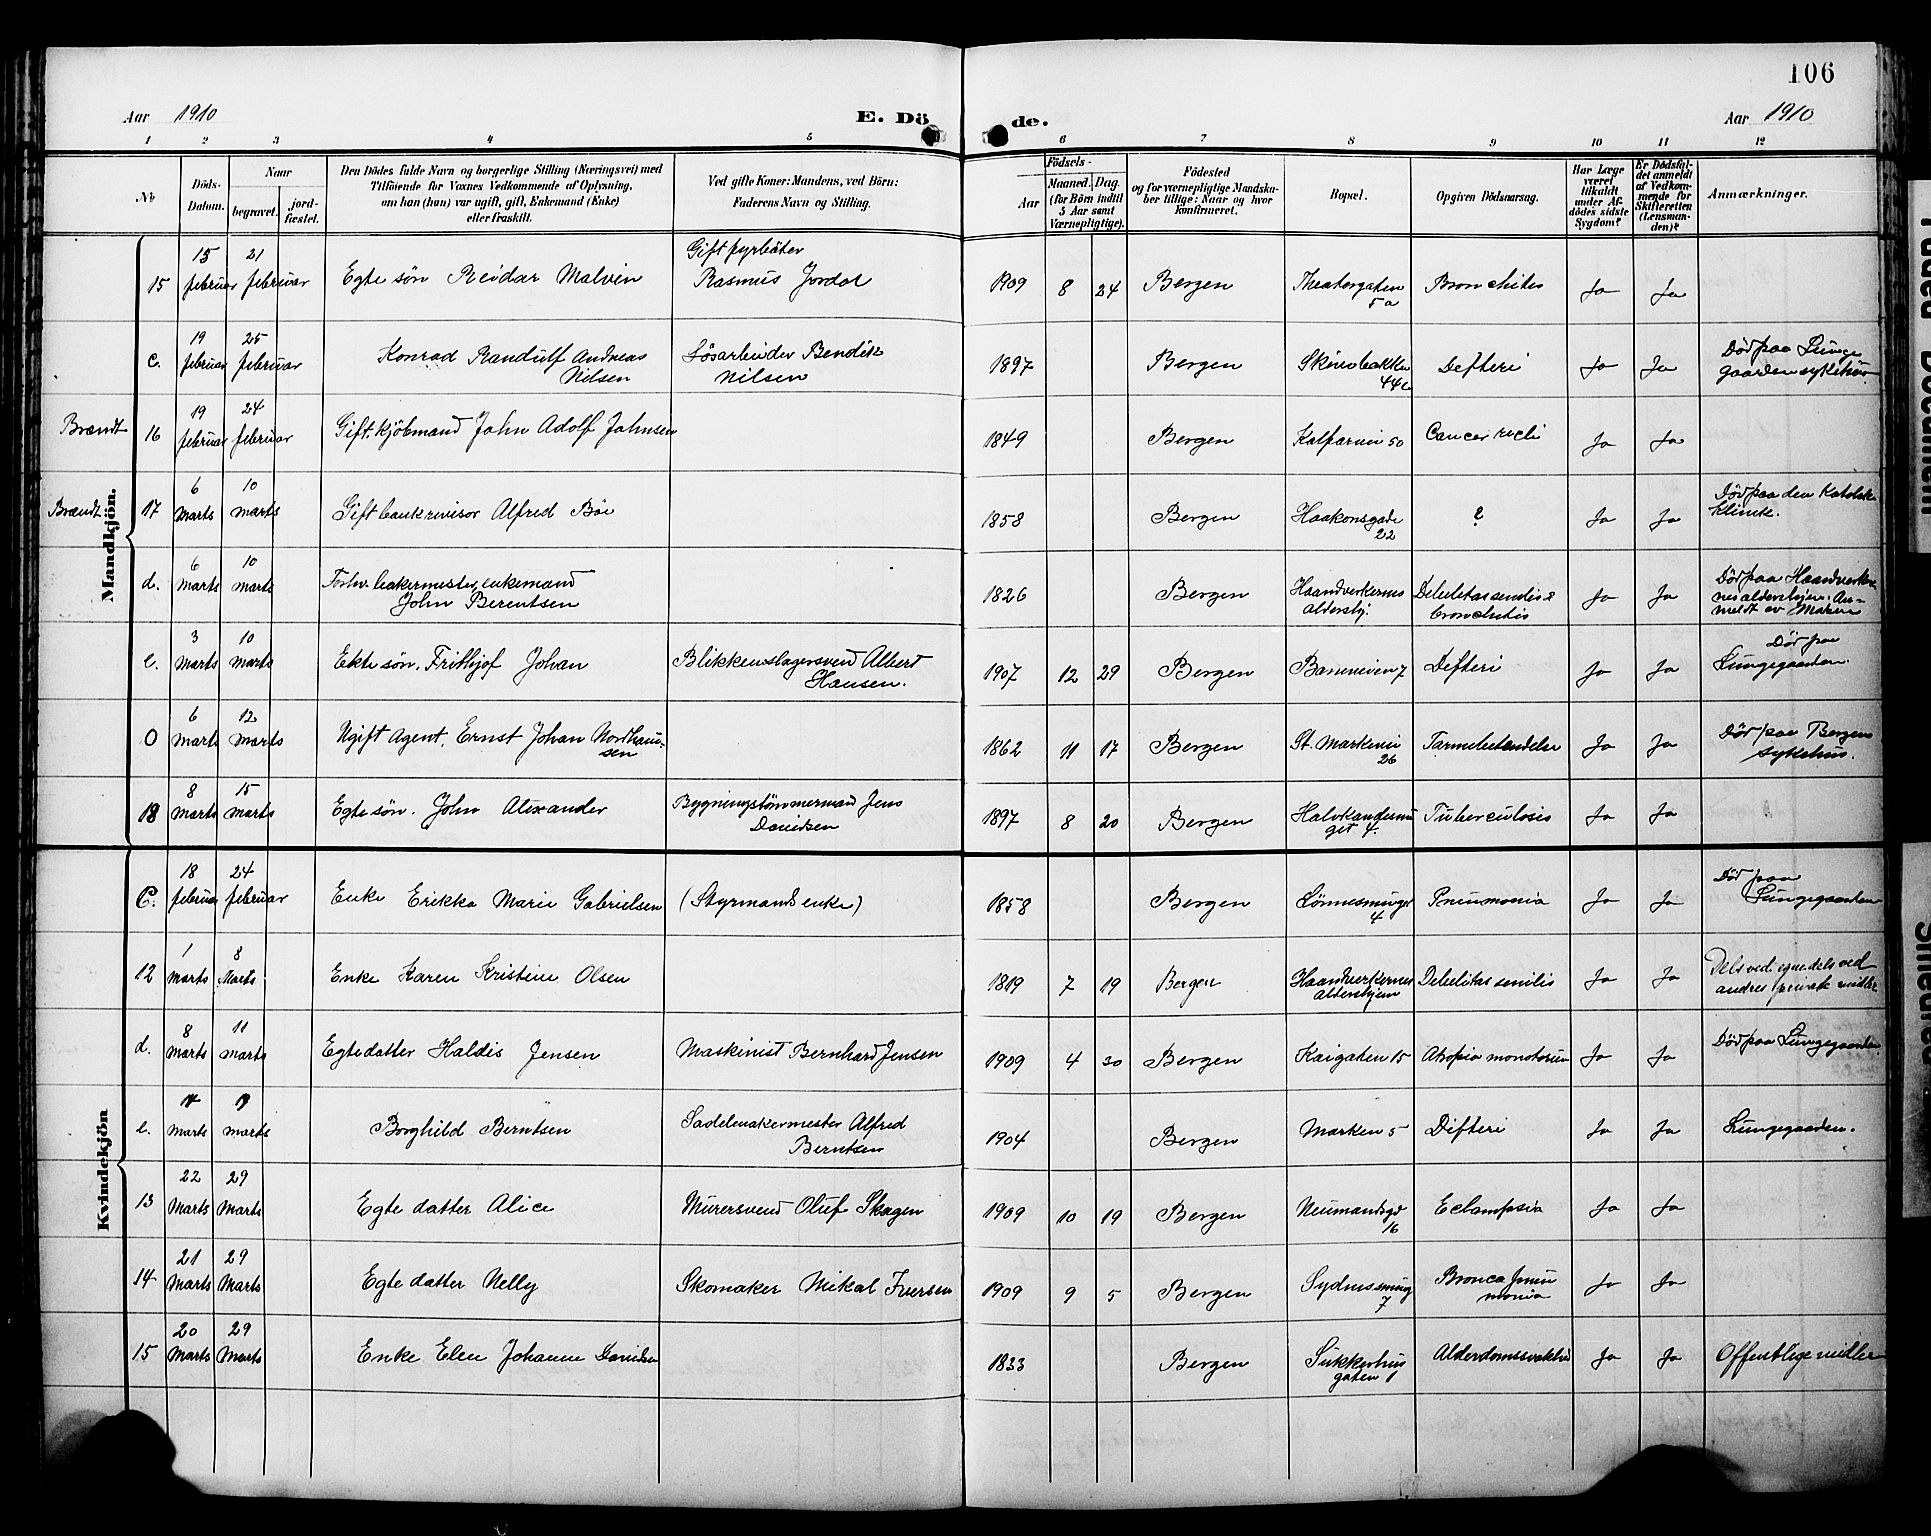 106
Aar 1910
E. Dö
de.
Aar 1910
1 2 3 4 5 6 7 8 9 10 11 12
No
Döds-
Datum.
Naar
begravet.
jord-
fæstet.
Den Dödes fulde Navn og borgerlige Stilling (Næringsvei) med
Tilföiende for Voxnes Vedkommende af Oplysning,
om han (hun) var ugift, gift, Enkemand (Enke)
eller fraskilt.
Ved gifte Koner: Mandens, ved Börn:
Faderens Navn og Stilling.
Födsels-
Aar
Maaned. Dag.
(for Börn indtil
5 Aar samt
Værnepligtige).
Födested
og for værnepligtige Mandska-
ber tillige: Naar og hvor
konfirmeret.
Bopæl.
Opgiven Dödsaarsag.
Har Læge
været
tilkaldt
under Af-
dödes sidste
Sygdom?
Er Dödsfal-
det anmeldt
af Vedkom-
mende for
Skifteretten
(Lensman-
den)?
Anmærkninger.
Mandkjön.
15 15 februar 21 februar Egte søn Reidar Malvin Gift fyrbøter
Rasmus Jordal 1909 8 24 Bergen Theatergaten
5a Bronchitis Ja Ja
c. 19 februar 25 februar Konrad Randulf Andreas
Nilsen Løsarbeider Bendik
Nilsen 1897 Bergen 44c Defteri Ja Ja Død paa Lunge
gaarden sykehus
Brændt 16 19 februar 24 februar Gift. kjöbmand John Adolf Johnsen 1849 Bergen Kalfarvei 50 Cancer recti Ja Ja
Brændt 17 6 marts 10 marts Gift bankrevisor Alfred Bøe 1858 Bergen Haakonsgade
22 ? Ja Ja Død paa den Katolske
Klinik.
d. 6 marts 10 marts Forhv. bakermester, enkemand
John Berentsen 1826 Bergen Haandverkernes
aldershj. Debilitas senilis &
bronchitis Ja Ja Død paa Haandverker
nes aldershjem. An-
meldt av
e. 3 marts 10 marts Ekte søn. Frithjof Johan Blikkenslagersvend Albert
Hansen. 1907 12 29 Bergen 7 Defteri Ja Ja Død paa
Lungegaarden.
O 6 marts 12 marts Ugift Agent, Ernst Johan Nordhau-
sen 1862 11 17 Bergen St. Markevei
26 Tarmbetendelse Ja Ja Død paa Bergens
sykehus.
18 8 marts 15 marts Egte søn. John Alexander Bygningstømmermand Jens
Davidsen 1897 8 20 Bergen Halvkandesmu
get 4. Tuberculosis Ja Ja
Kvindekjön
C. 18 februar 24 februar Enke Erikka Marie Gabrielsen (Styrmands enke) 1858 Bergen Lønnesmuget
4 Pneumonia Ja Ja Død paa
Lungegaarden
12 1 marts 8 Marts Enke Karen Kristine Olsen 1819 7 19 Bergen Haandverkernes
Aldershjem Debilitas senilis Ja Ja Dels ved egne dels ved
andres private midler
d. 8 marts 11 marts Egte datter Haldis Jensen Maskinist Bernhard Jensen 1909 4 30 Bergen Kaigaten 15 Ja Ja Død paa Lungegaarden.
e. marts marts Borghild Berntsen Sadelmakermester Alfred
Berntsen 1904 Bergen Marken 5 Difteri Ja Ja Lungegaarden.
13 22 Marts 29 Marts Egte datter Alice Murersvend Oluf Skagen 1909 10 19 Bergen Neumandsgd
16 Eclampsia Ja Ja
14 21 Marts 29 Marts Egte datter Nelly Skomaker Mikal Iversen 1909 9 5 Bergen Sydnessmug
7 Ja Ja
15 20 Marts 29 Marts Enke Elen Johanne Davidsen 1833 Bergen Sukkerhus
gaten 1 Alderdomssvakhed Ja Ja Offentlige midler